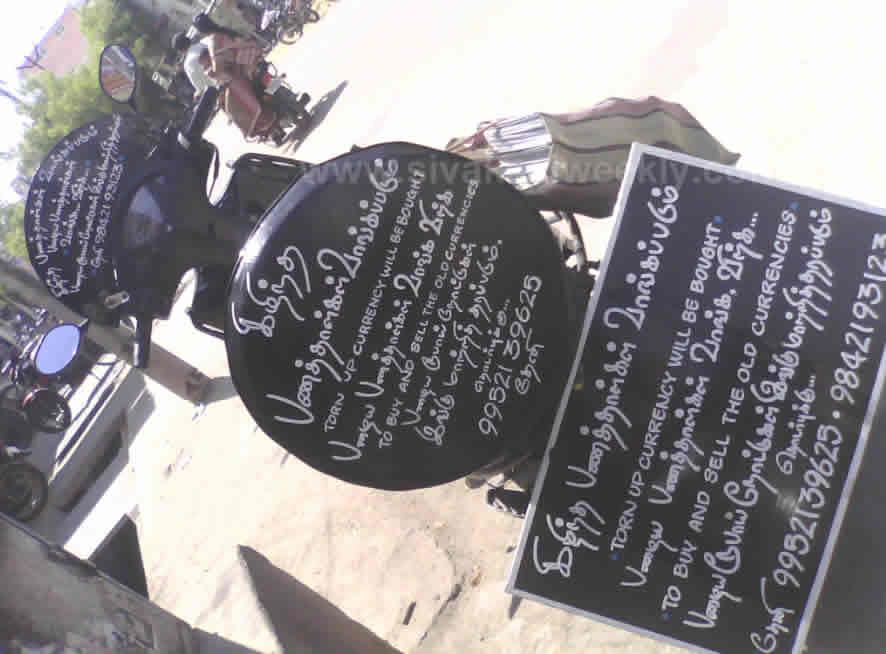 www.sivakasiweekly.com
கிழிந்த
பணத்தாள்கள் வாங்கப்படும்
TORN UP CURRENCY WILL BE BOUGHT
பழைய பணத்தாள்கள் வாங்க விற்க
TO BUY AND SELL THE OLD CURRENCIES
பழைய ரூபாய் நோட்டுகள்
இங்கு மாற்றித் தரப்படும்.
தொடர்புக்கு...
99521 39625
தேனி
கிழிந்த பணத்தாள்கள் வாங்கப்படும்
TORN UP CURRENCY WILL BE BOUGHT
பழைய பணத்தாள்கள் வாங்க, விற்க...
TO BUY AND SELL THE OLD CURRENCIES
பழைய ரூபாய் நோட்டுகள் இங்கு மாற்றித்தரப்படும்
தொடர்புக்கு...
தேனி 9952139625 • 9842193123
98421 93123